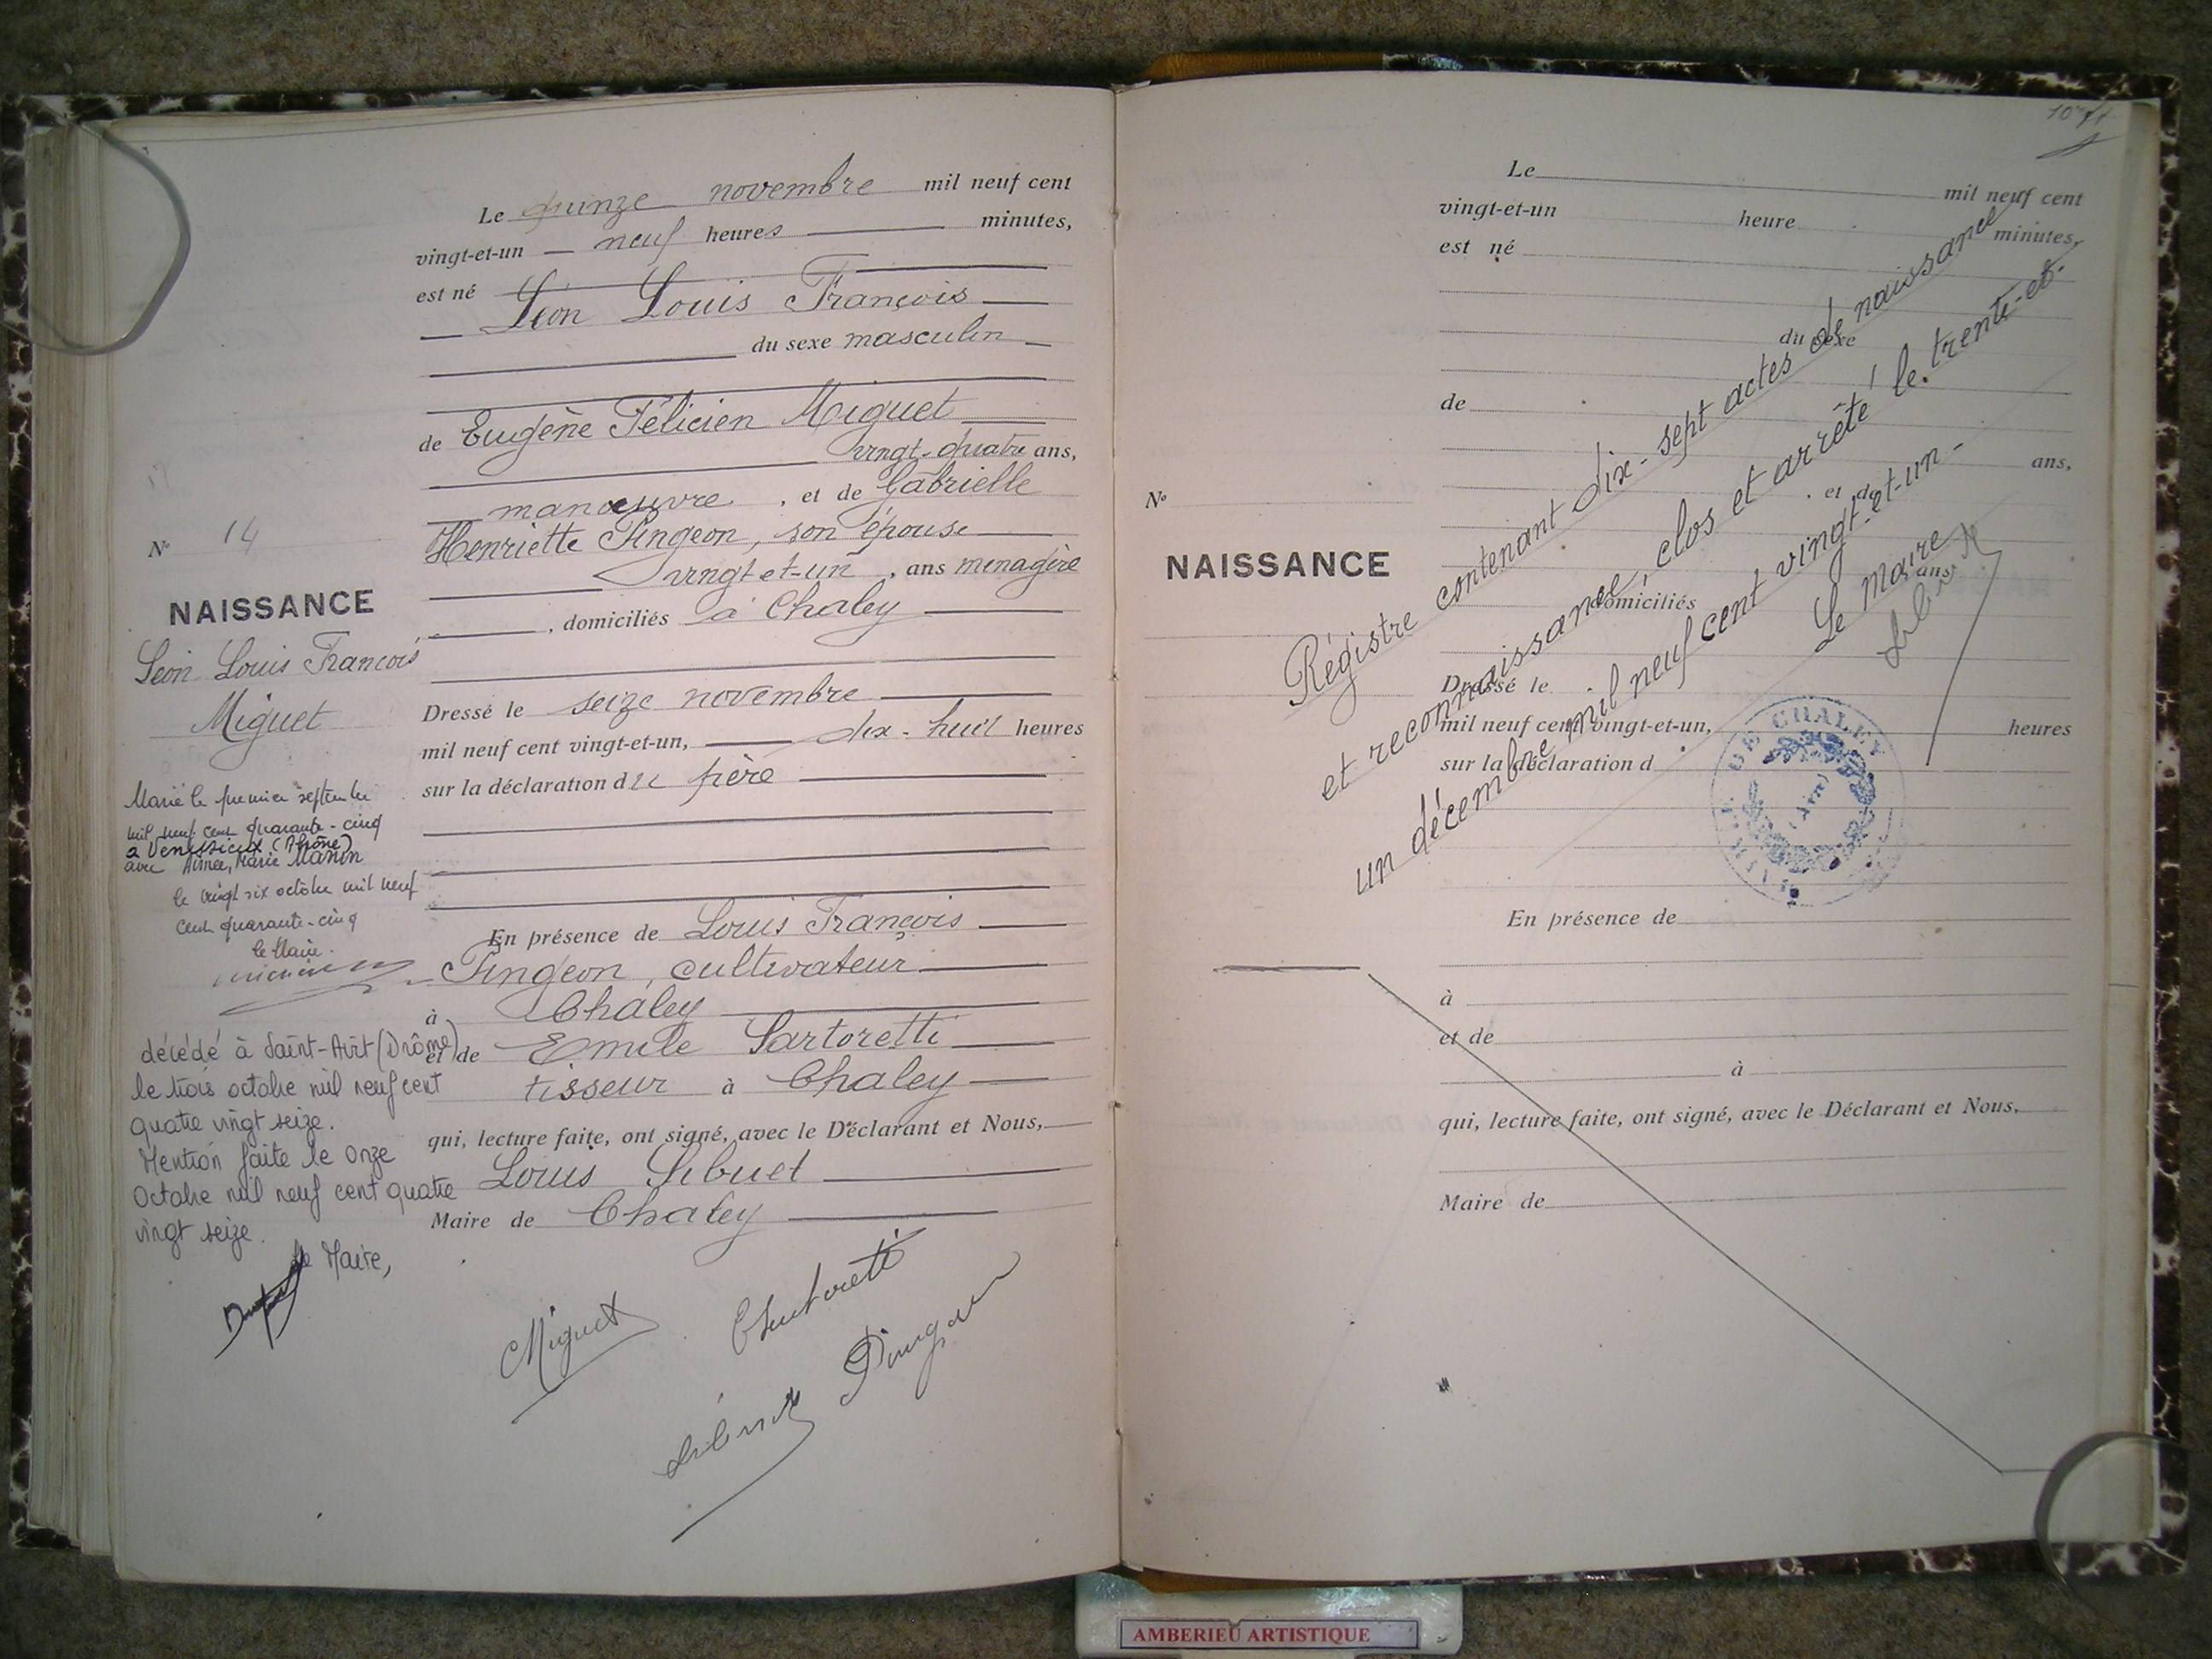 Le quinze novembre mil neuf cent
vingt-et-un neuf heures minutes,
est né
Léon Louis François
du sexe masculin
de Eugène Félicien Miguet
vingt-quatre ans,
manœuvre, et de Gabrielle
Henriette Pingeon, son épouse
vingt et-un, ans menagère
, domiciliés à Chaley
Dressé le seize novembre
mil neuf cent vingt-et-un, dix-huit heures
sur la déclaration du père
En présence de Louis François
Pingeon, cultivateur
à Chaley
et de Emile Sartoretti
tisseur à Chaley
qui, lecture faite, ont signé, avec le Déclarant et Nous,
Louis Sibuet
Maire de Chaley
Miguet
Pingeon
Sibuet
N° 14
NAISSANCE
Léon Louis François
Miguet
Marié le premier septembre
mil neuf cent quarante-cinq
a Venissieux (Rhône)
avec Aimée, Marie Manin
le vingt six octobre mil neuf
cent quarante-cinq
le Maire.
décédé à Saint-Avit (Drôme)
le trois octobre mil neuf cent
quatre vingt seize.
Mention faite le onze
Octobre mil neuf cent quatre
vingt seize.
le Maire,
Le mil neuf cent
vingt-et-un heure minutes,
est né
du sexe
de
ans,
, et de
ans
domiciliés
Dressé le
mil neuf cent vingt-et-un, heures
sur la déclaration d
En présence de
à
et de
à
qui, lecture faite, ont signé, avec le Déclarant et Nous,
Maire de
N°
NAISSANCE
Régistre contenant dix-sept actes de naissance
et reconnaissance, clos et arrêté le trente-et-
un décembre mil neuf cent vingt-et-un-
Le Maire
Sibuet
DE CHALEY
(Ain)
AMBERIEU ARTISTIQUE